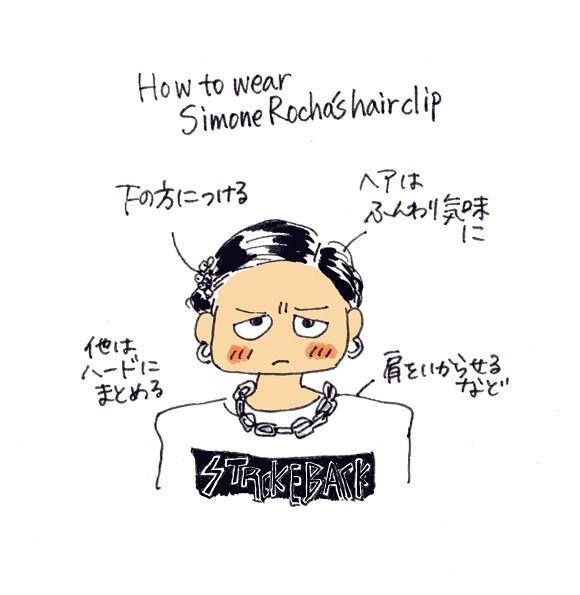 How to wear
Simone Rocha's hair clip
下の方につける
ヘアは
ふんわり気味
に
他は
ハードに
まとめる
肩をいからせる
など
STRIKEBACK